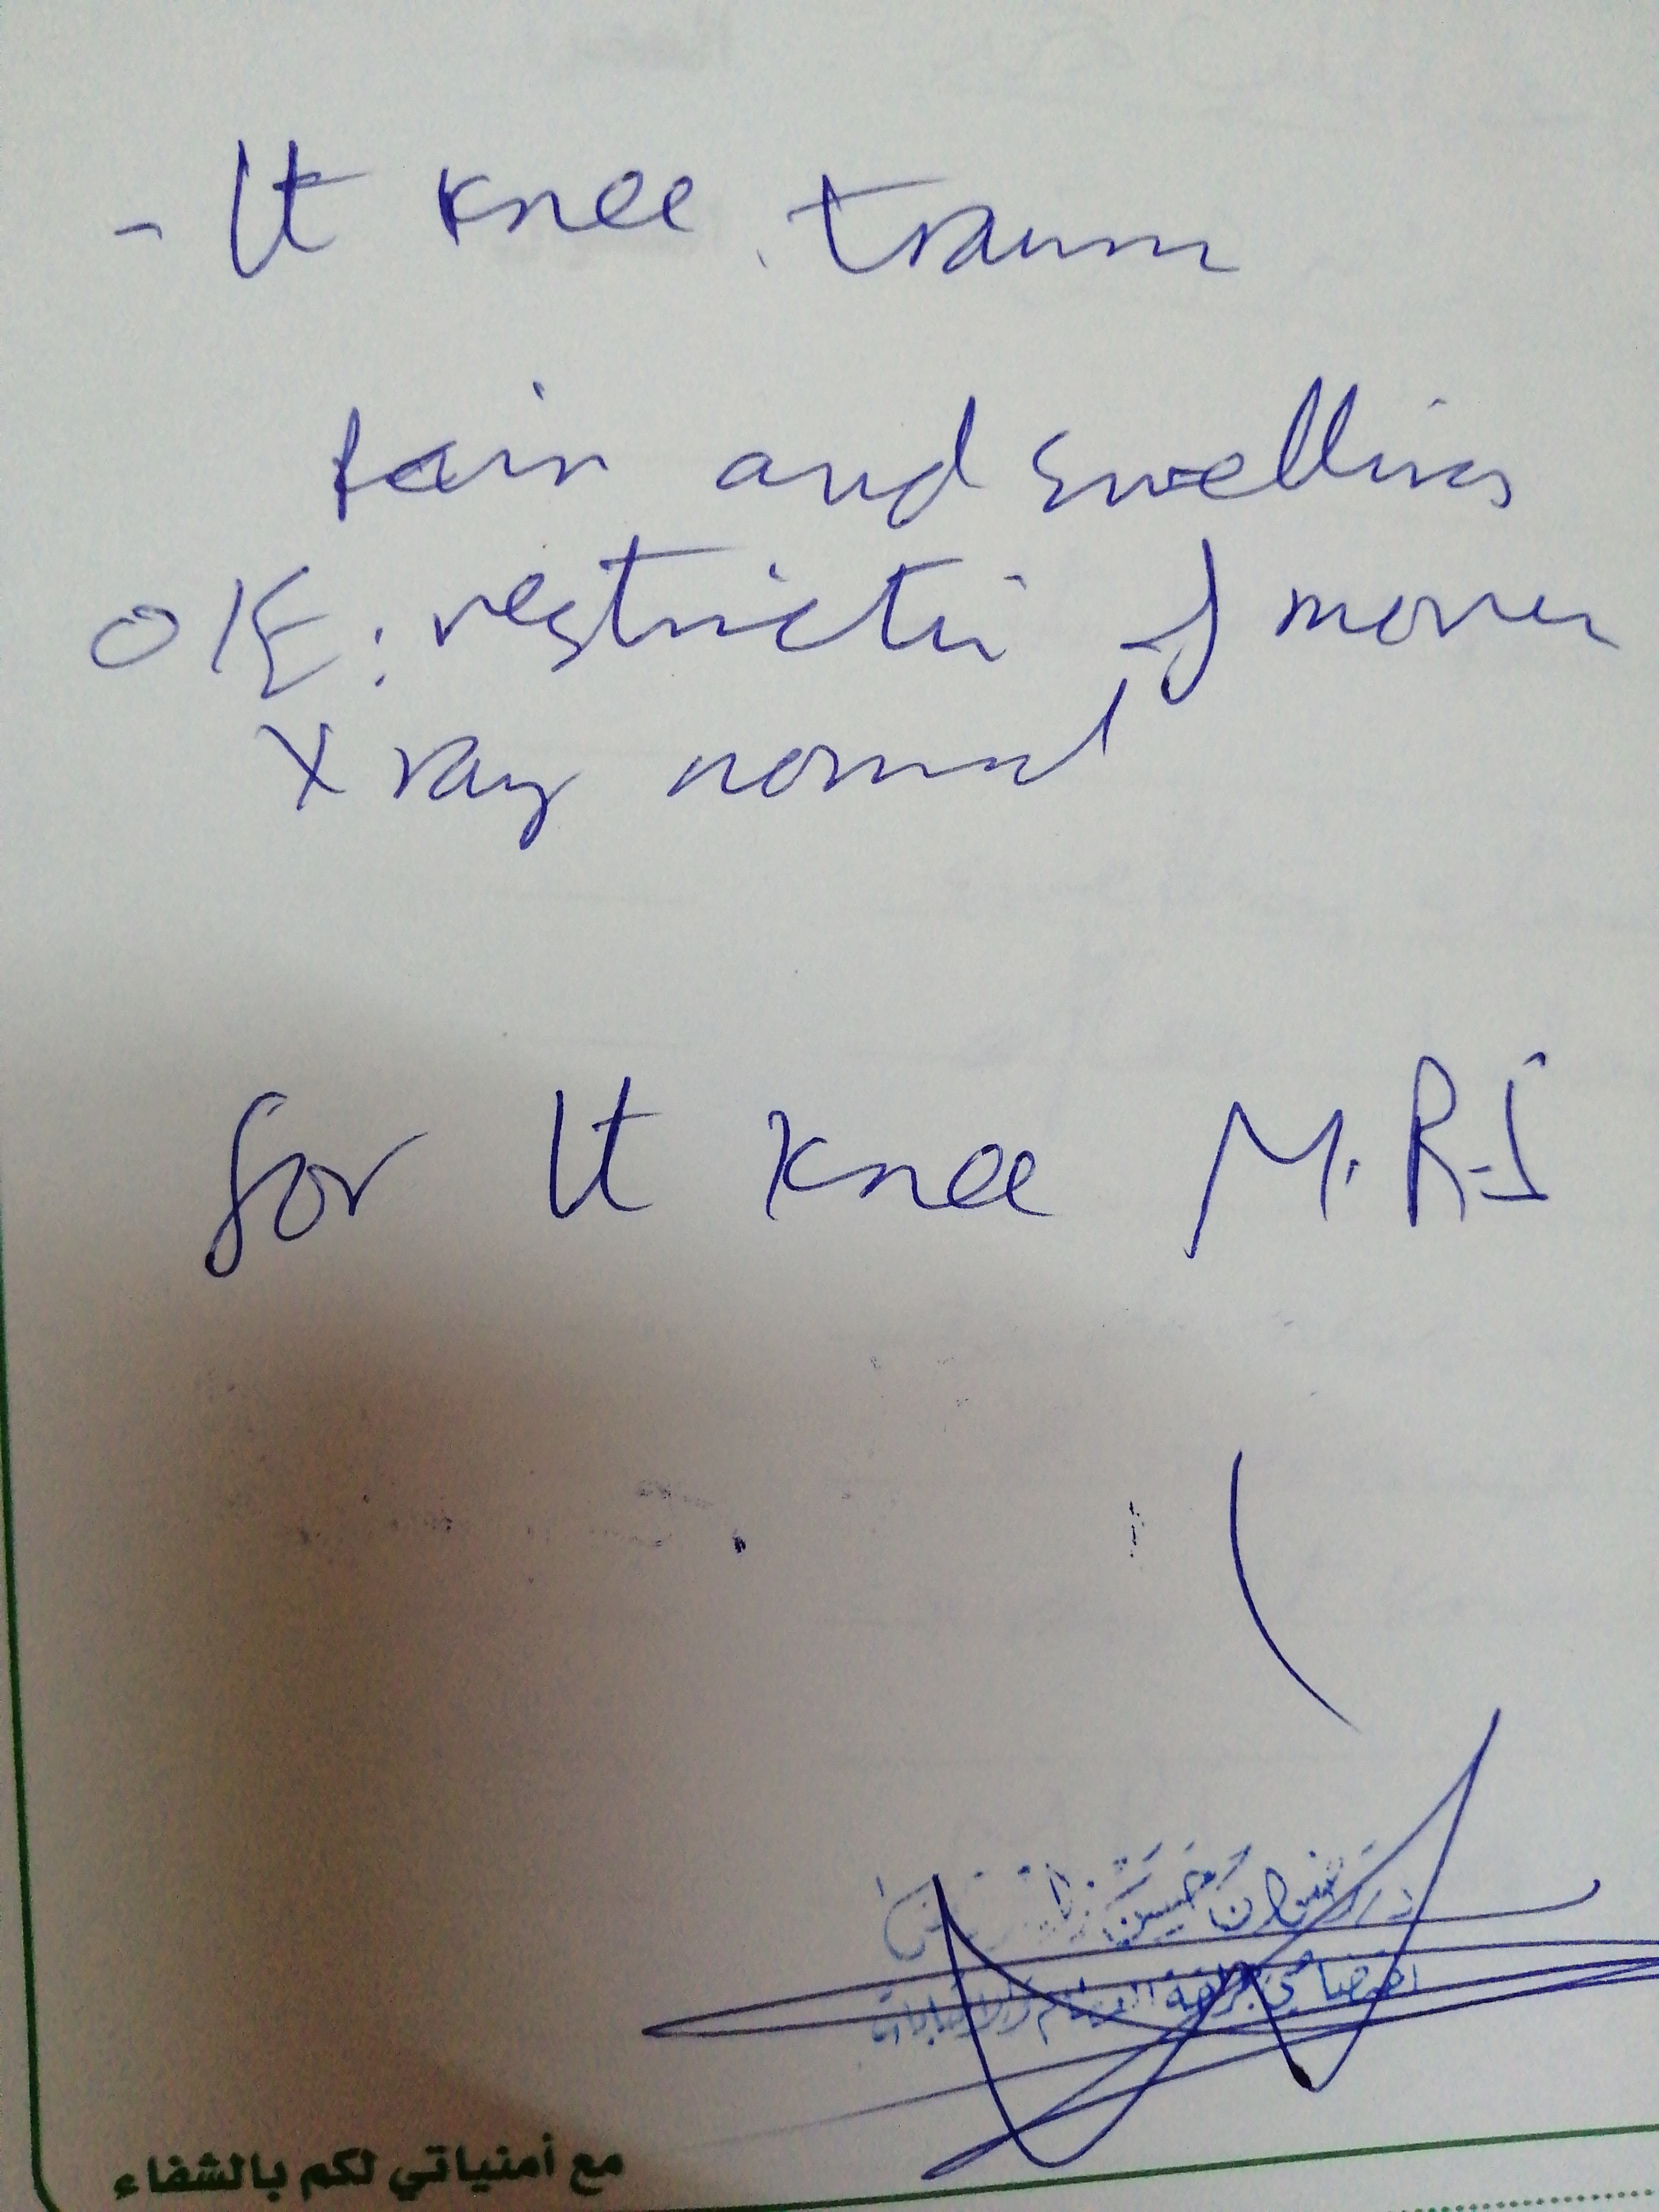 - lt knee traum
Pain and swelling
O/E: restriction of movem
X ray normal
for lt knee M.R.I
حسين
اختصاصي جراحة العظام والاصابات
مع أمنياتي لكم بالشفاء